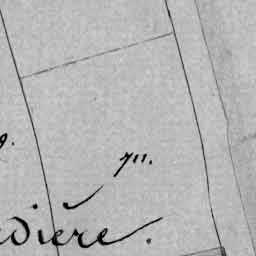 9.
711.
dière.